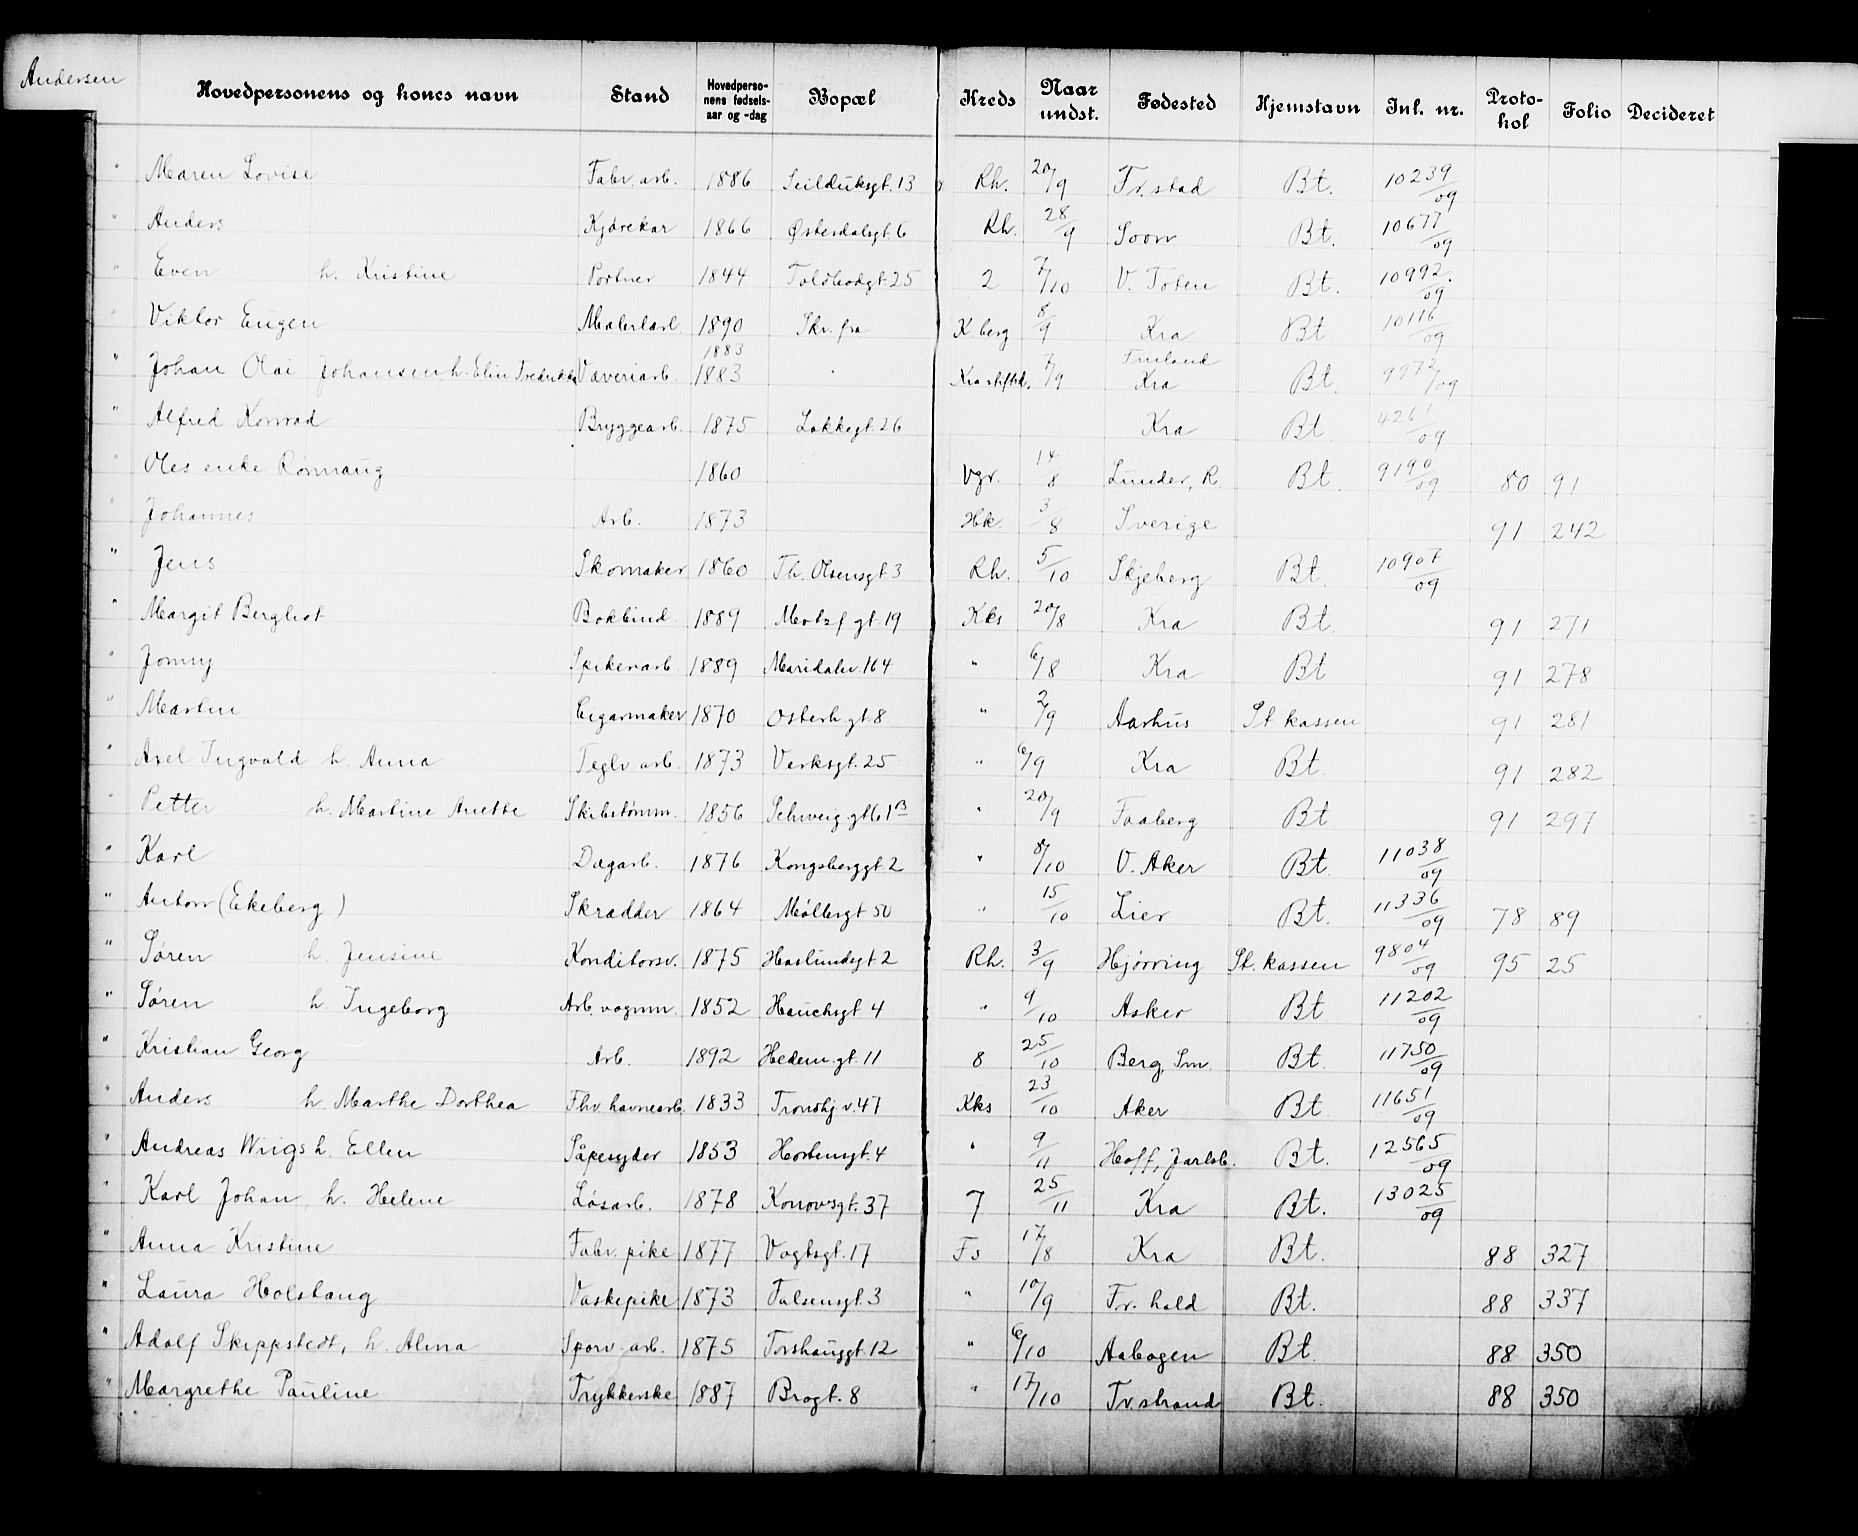 Andersen
Hovedpersonens og kones navn Stand Hovedperso-nens fødsels-aar og -dag Bopæl Kreds Naar undst. Fødested Hjemstavn Inl. nr. Proto-kol Folio Decideret
" Maren Lovise Fabr. arb. 1886 Seilduksgt. 13 Rh. 20/9 Fr.stad Bt. 10239/09
" Anders Kjørekar 1866 Østerdalsgt. 6 Rh. 28/9 Soon Bt. 10677/09
" Even h. Kristine Portner 1844 Toldbodgt. 25 2 7/10 V. Toten Bt. 10992/09
" Viktor Eugen Malerlærl 1890 Skr. fra K.berg 8/9 Kra Bt 10116/09
1883 Finland
" Johan Olai Johansen, h. Elin Fredrikke Væveriarb. 1883 " Kra stifted. 7/9 Kra Bt. 9972/09
" Alfred Konrad Bryggearb. 1875 Lakkegt. 26 Kra Bt 4261/09
" Oles enke Rønnaug 1860 Vgr. 14/8 Lunder, R. Bt 9190/09 80 91
" Johannes Arb. 1873 Hk. 3/8 Sverige 91 242
" Jens Skomaker 1860 Th. Olsensgt. 3 Rh. 5/10 Skjeberg Bt. 10907/09
" Margit Bergliot Bokbind. 1889 Motzf. gt. 19 Kks 20/8 Kra Bt 91 271
" Jonny Spikerarb. 1889 Maridalsv. 164 " 6/8 Kra Bt 91 278
" Martin Cigarmaker 1870 Osterh. gt. 8 " 2/9 Aarhus St kassen 91 281
" Axel Ingvald h. Anna Teglv. arb. 1873 Verksgt. 25 " 6/9 Kra Bt. 91 282
" Petter h. Martine Anette Skibstømm. 1856 Schweig. gt 61 B " 20/9 Faaberg Bt 91 297
" Karl Dagarb. 1876 Kongsberggt. 2 " 8/10 V. Aker Bt 11038/09
" Anton (Ekeberg) Skrædder 1864 Møllergt 50 " 15/10 Lier Bt. 11336/09 78 89
" Søren h. Jensine Konditorsv. 1875 Haslundsgt 2 Rh. 3/9 Hjørring St. kassen 9804/09 95 25
" Søren h. Ingeborg Arb. vognm. 1852 Hauchsgt 4 " 9/10 Asker Bt 11202/09
" Kristian Georg Arb. 1892 Hedem. gt. 11 8 25/10 Berg, Sm. Bt. 11750/09
" Anders h. Marthe Dorthea Fhv. havnearb. 1833 Trondhj. v. 47 Kks 23/10 Aker Bt. 11651/09
" Andreas Wiigs h. Ellen Såpesyder 1853 Hortensgt. 4 " 9/11 Hoff, Jarlsb. Bt. 12565/09
" Karl Johan, h. Helene Løsarb. 1878 Konowsgt. 37 7 25/11 Kra Bt. 13025/09
" Anna Kristine Fabr. pike 1877 Vogtsgt. 17 Fs 17/8 Kra Bt. 88 327
" Laura Holstang Vaskepike 1873 Falsensgt. 3 " 10/9 Fr. hald Bt. 88 337
" Adolf Skippstedt, h. Alma Sporv. arb. 1875 Torshauggt. 12 " 6/10 Aabogen Bt. 88 350
" Margrethe Pauline Trykkerske 1887 Brogt. 8 " 17/10 Tv.strand Bt. 88 350